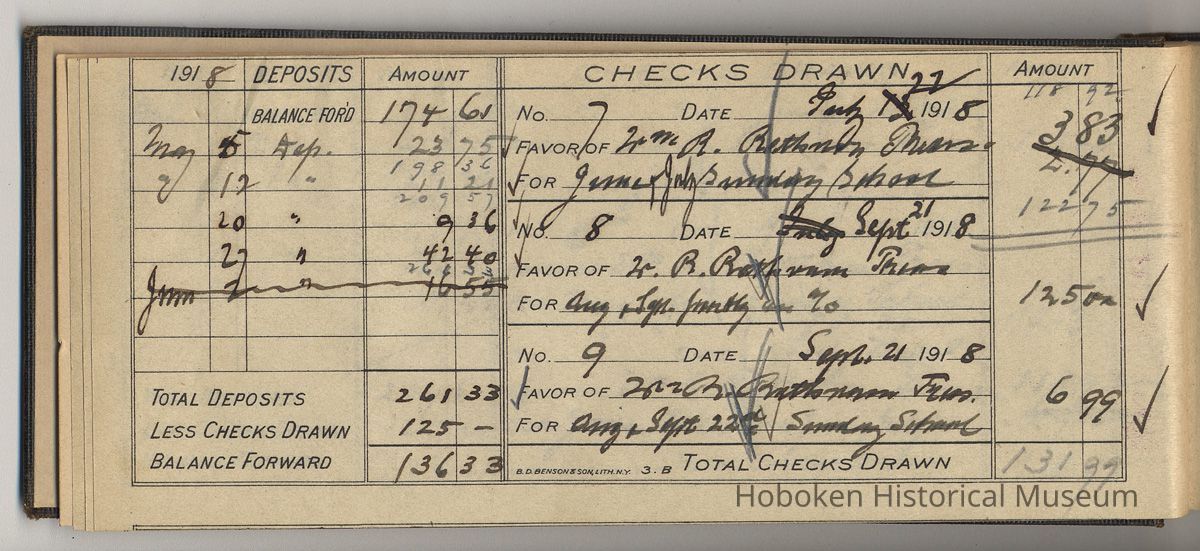 1918 DEPOSITS AMOUNT
BALANCE FOR'D 174 61
May 5 Dep. 23 75
198 36
" 12 " 11 21
209 57
20 " 9 36
27 " 42 40
June 2 " 16 55
TOTAL DEPOSITS 261 33
LESS CHECKS DRAWN 125 –
BALANCE FORWARD 136 33
CHECKS DRAWN AMOUNT
118 92
No. 7 DATE July 13 22 1918 3 83
FAVOR OF Wm R. Treas.
FOR June & July Sunday School
122 75
No. 8 DATE July Sept 21 1918
FAVOR OF W. R. Treas
FOR Aug, Sept. on % 125 00
No. 9 DATE Sept. 21 1918
FAVOR OF Wm R. Treas. 6 99
FOR Aug, Sept 22nd Sunday School
B.D. BENSON & SON, LITH. N.Y. 3.B TOTAL CHECKS DRAWN 131 99
Hoboken Historical Museum